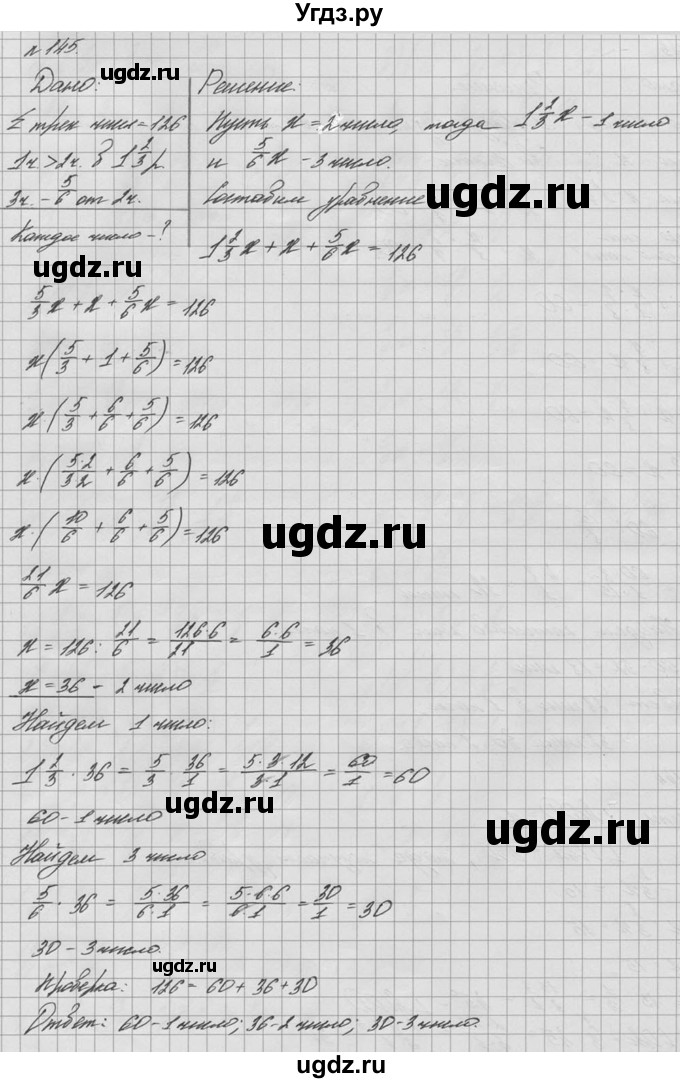 Угдз.ру
№ 145.
ugdz.ru
Дано:
Решение:
Σ трех чисел = 126
Пусть x = 2 число, тогда 1 2/3 x - 1 число
1ч. > 2ч. в 1 2/3 р.
и 5/6 x - 3 число.
3ч. - 5/6 от 2ч.
Составим уравнение
ugdz.ru
Каждое число - ?
1 2/3 x + x + 5/6 x = 126
ugdz.ru
5/3 x + x + 5/6 x = 126
x(5/3 + 1 + 5/6) = 126
x(5/3 + 6/6 + 5/6) = 126
x·(5·2/3·2 + 6/6 + 5/6) = 126
x·(10/6 + 6/6 + 5/6) = 126
ugdz.ru
21/6 x = 126
x = 126 : 21/6 = 126·6/21 = 6·6/1 = 36
x = 36 - 2 число
Найдем 1 число:
1 2/3 · 36 = 5/3 · 36/1 = 5·3·12/3·1 = 60/1 = 60
ugdz.ru
60 - 1 число
ugdz.ru
Найдем 3 число
5/6 · 36 = 5·36/6·1 = 5·6·6/6·1 = 30/1 = 30
30 - 3 число.
ugdz.ru
Проверка: 126 = 60 + 36 + 30
Ответ: 60 - 1 число; 36 - 2 число; 30 - 3 число.
ugdz.ru